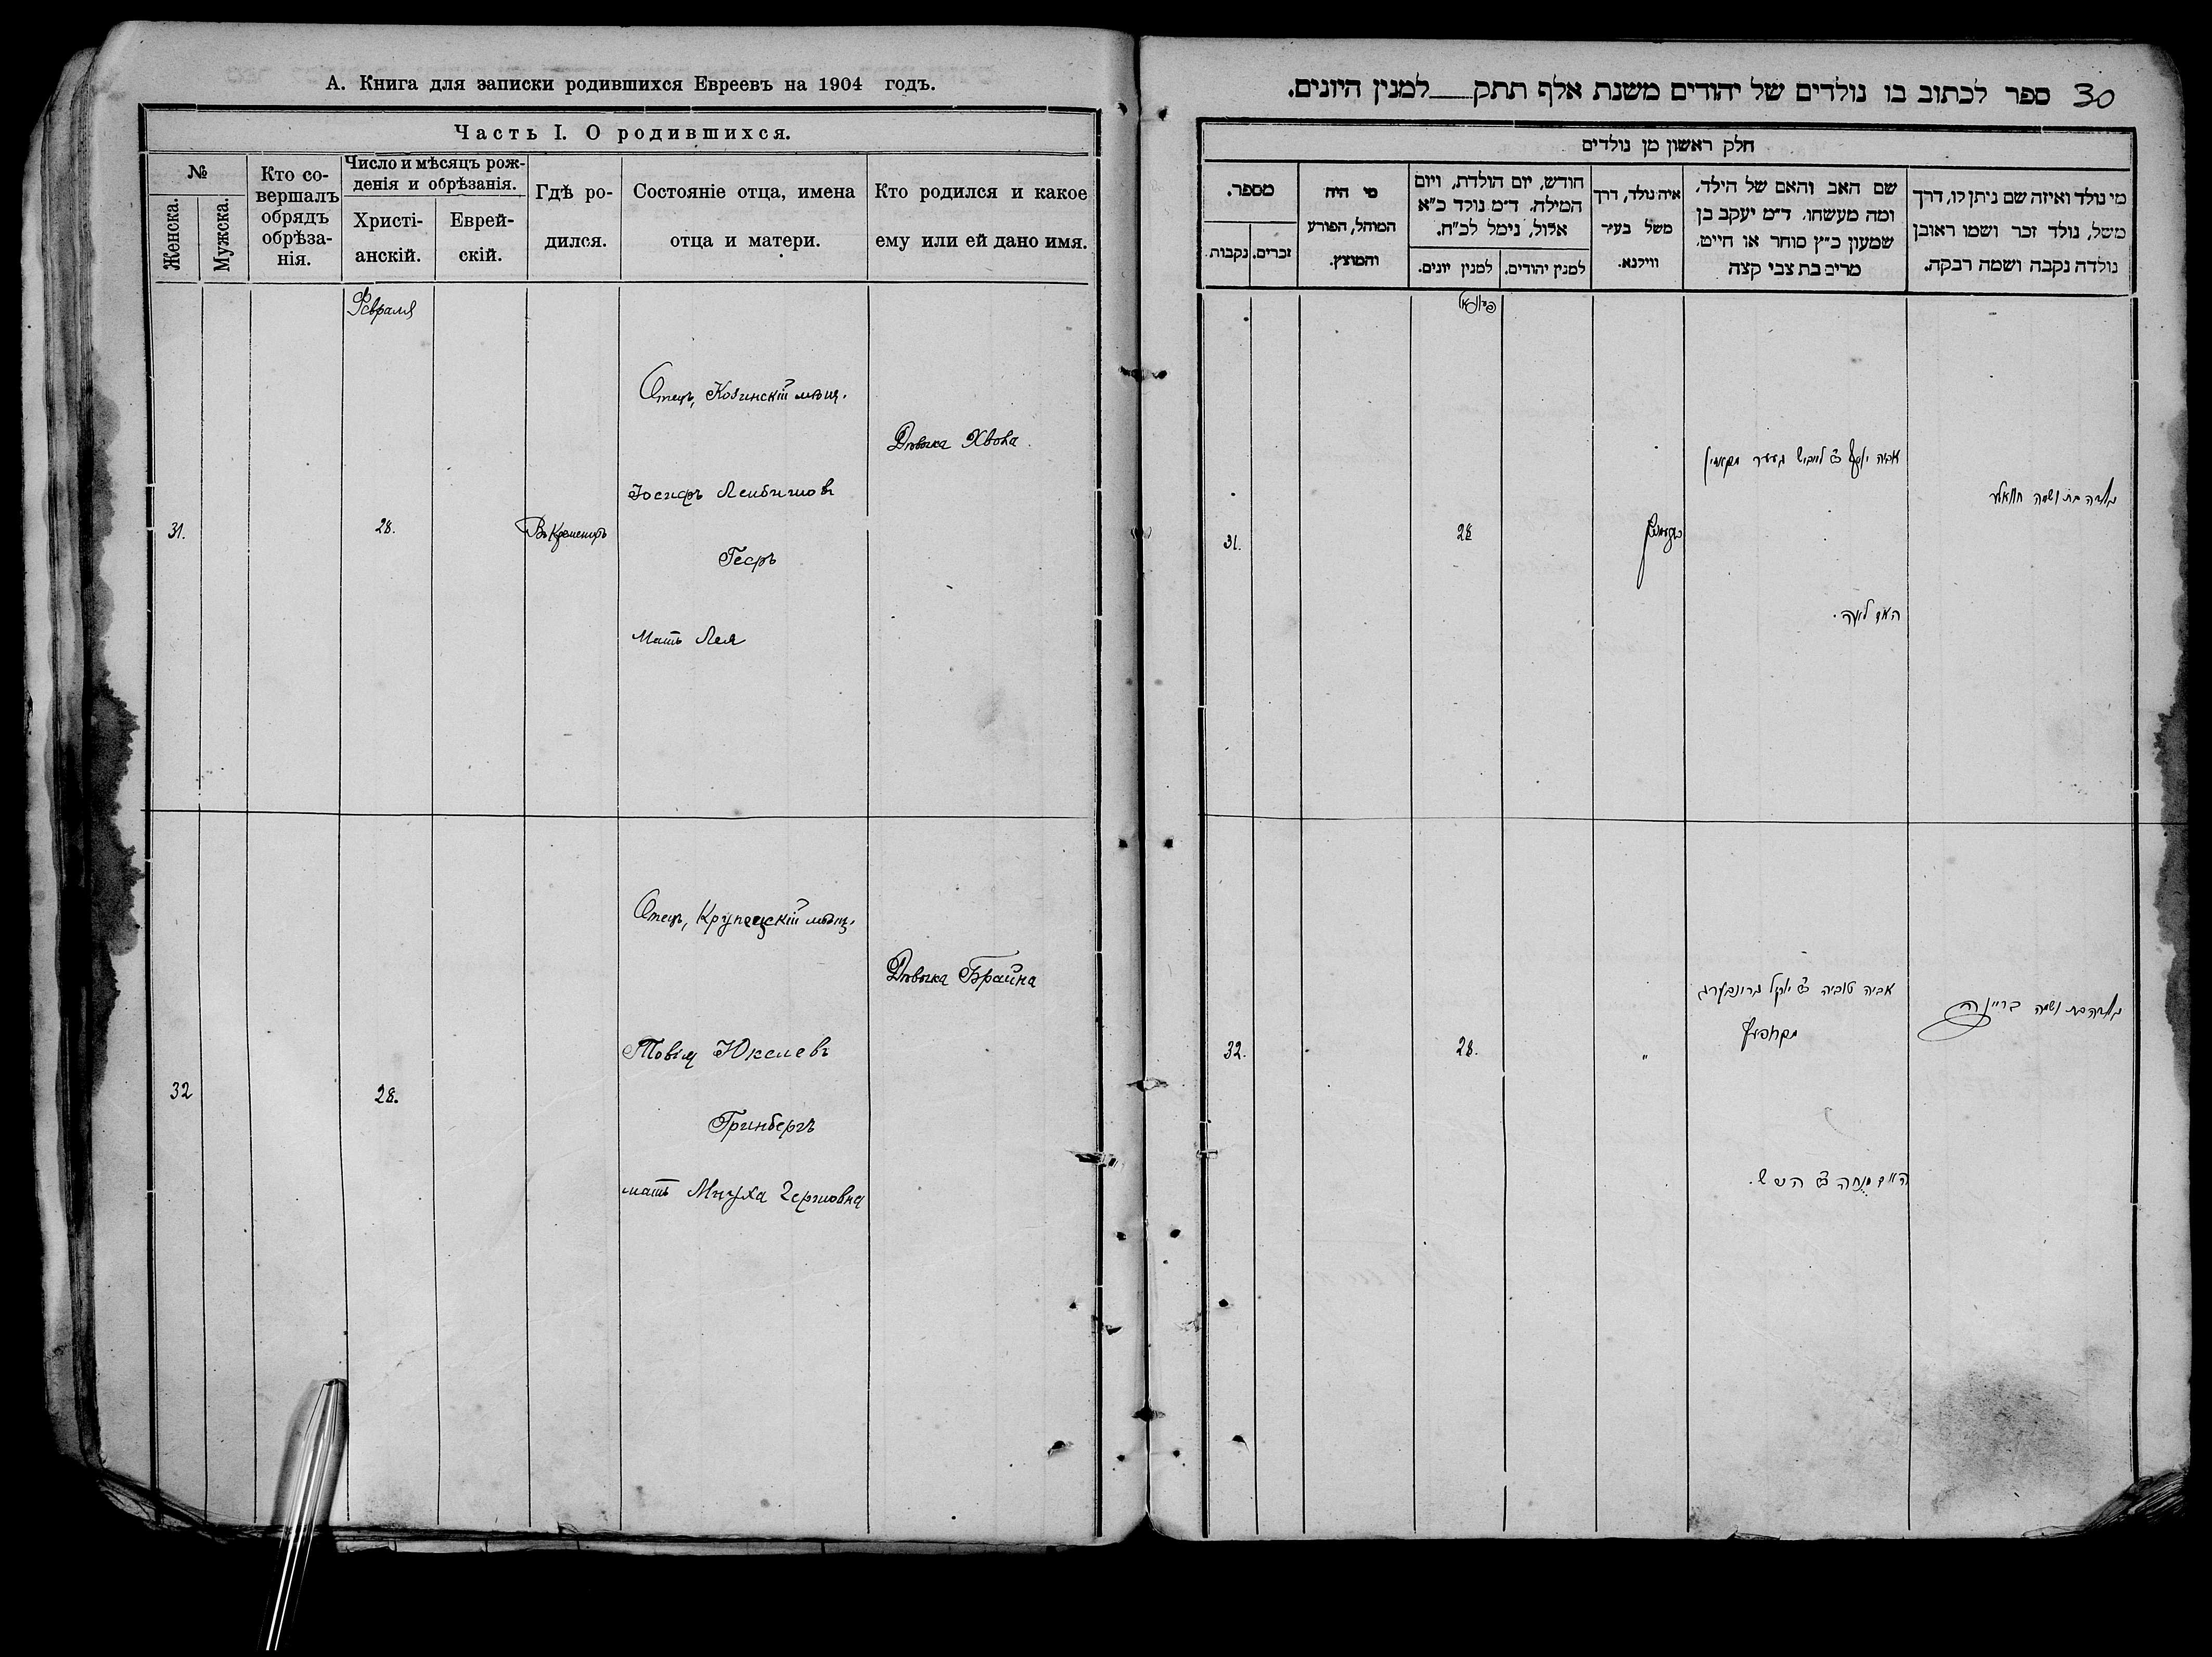 А. Книга для записки родившихся Евреевъ на 1904 годъ.
Часть I. О родившихся.
№
Женска.
Мужска.
Кто со-
вершалъ
обрядъ
обрѣза-
нія.
Число и мѣсяцъ рож-
денія и обрѣзанія.
Христі-
анскій.
Еврей-
скій.
Гдѣ ро-
дился.
Состояніе отца, имена
отца и матери.
Кто родился и какое
ему или ей дано имя.
Февраля
31.
28.
Въ Кременцѣ
Отецъ, Козинскій мѣщ.
Іосифъ Лейбишовъ
Гесръ
Мать Лея
Дѣвочка Хвола
32
28.
Отецъ, Крупецкій мѣщ.
Товія Юкелевъ
Гринбергъ
мать Мнуха Гершовна
Дѣвочка Брайна
30
ספר לכתוב בו נולדים של יהודים משנת אלף תתק למנין היונים.
חלק ראשון מן נולדים
מי נולד ואיזה שם ניתן לו, דרך
משל, נולד זכר ושמו ראובן
נולדה נקבה ושמה רבקה.
שם האב והאם של הילד,
ומה מעשהו. ד״מ יעקב בן
שמעון כ״ץ סוחר או חייט,
מרים בת צבי קצה
איה נולד, דרך
משל בעיר
ווילנא.
חודש, יום הולדת, ויום
המילה. ד״מ נולד כ״א
אלול, נימל לכ״ח.
למנין יהודים.
למנין יונים.
מי היה
המוהל, הפורע
והמוצץ.
מספר.
זכרים.
נקבות.
נולדה בת ושמה חוואלע
לייביש
האם לאה.
28
31.
נולדה בת ושמה בריינה
אביה טוביה ב״ר יוקל גרינבערג
האם מנוחה ב״ר הערש.
"
28.
32.